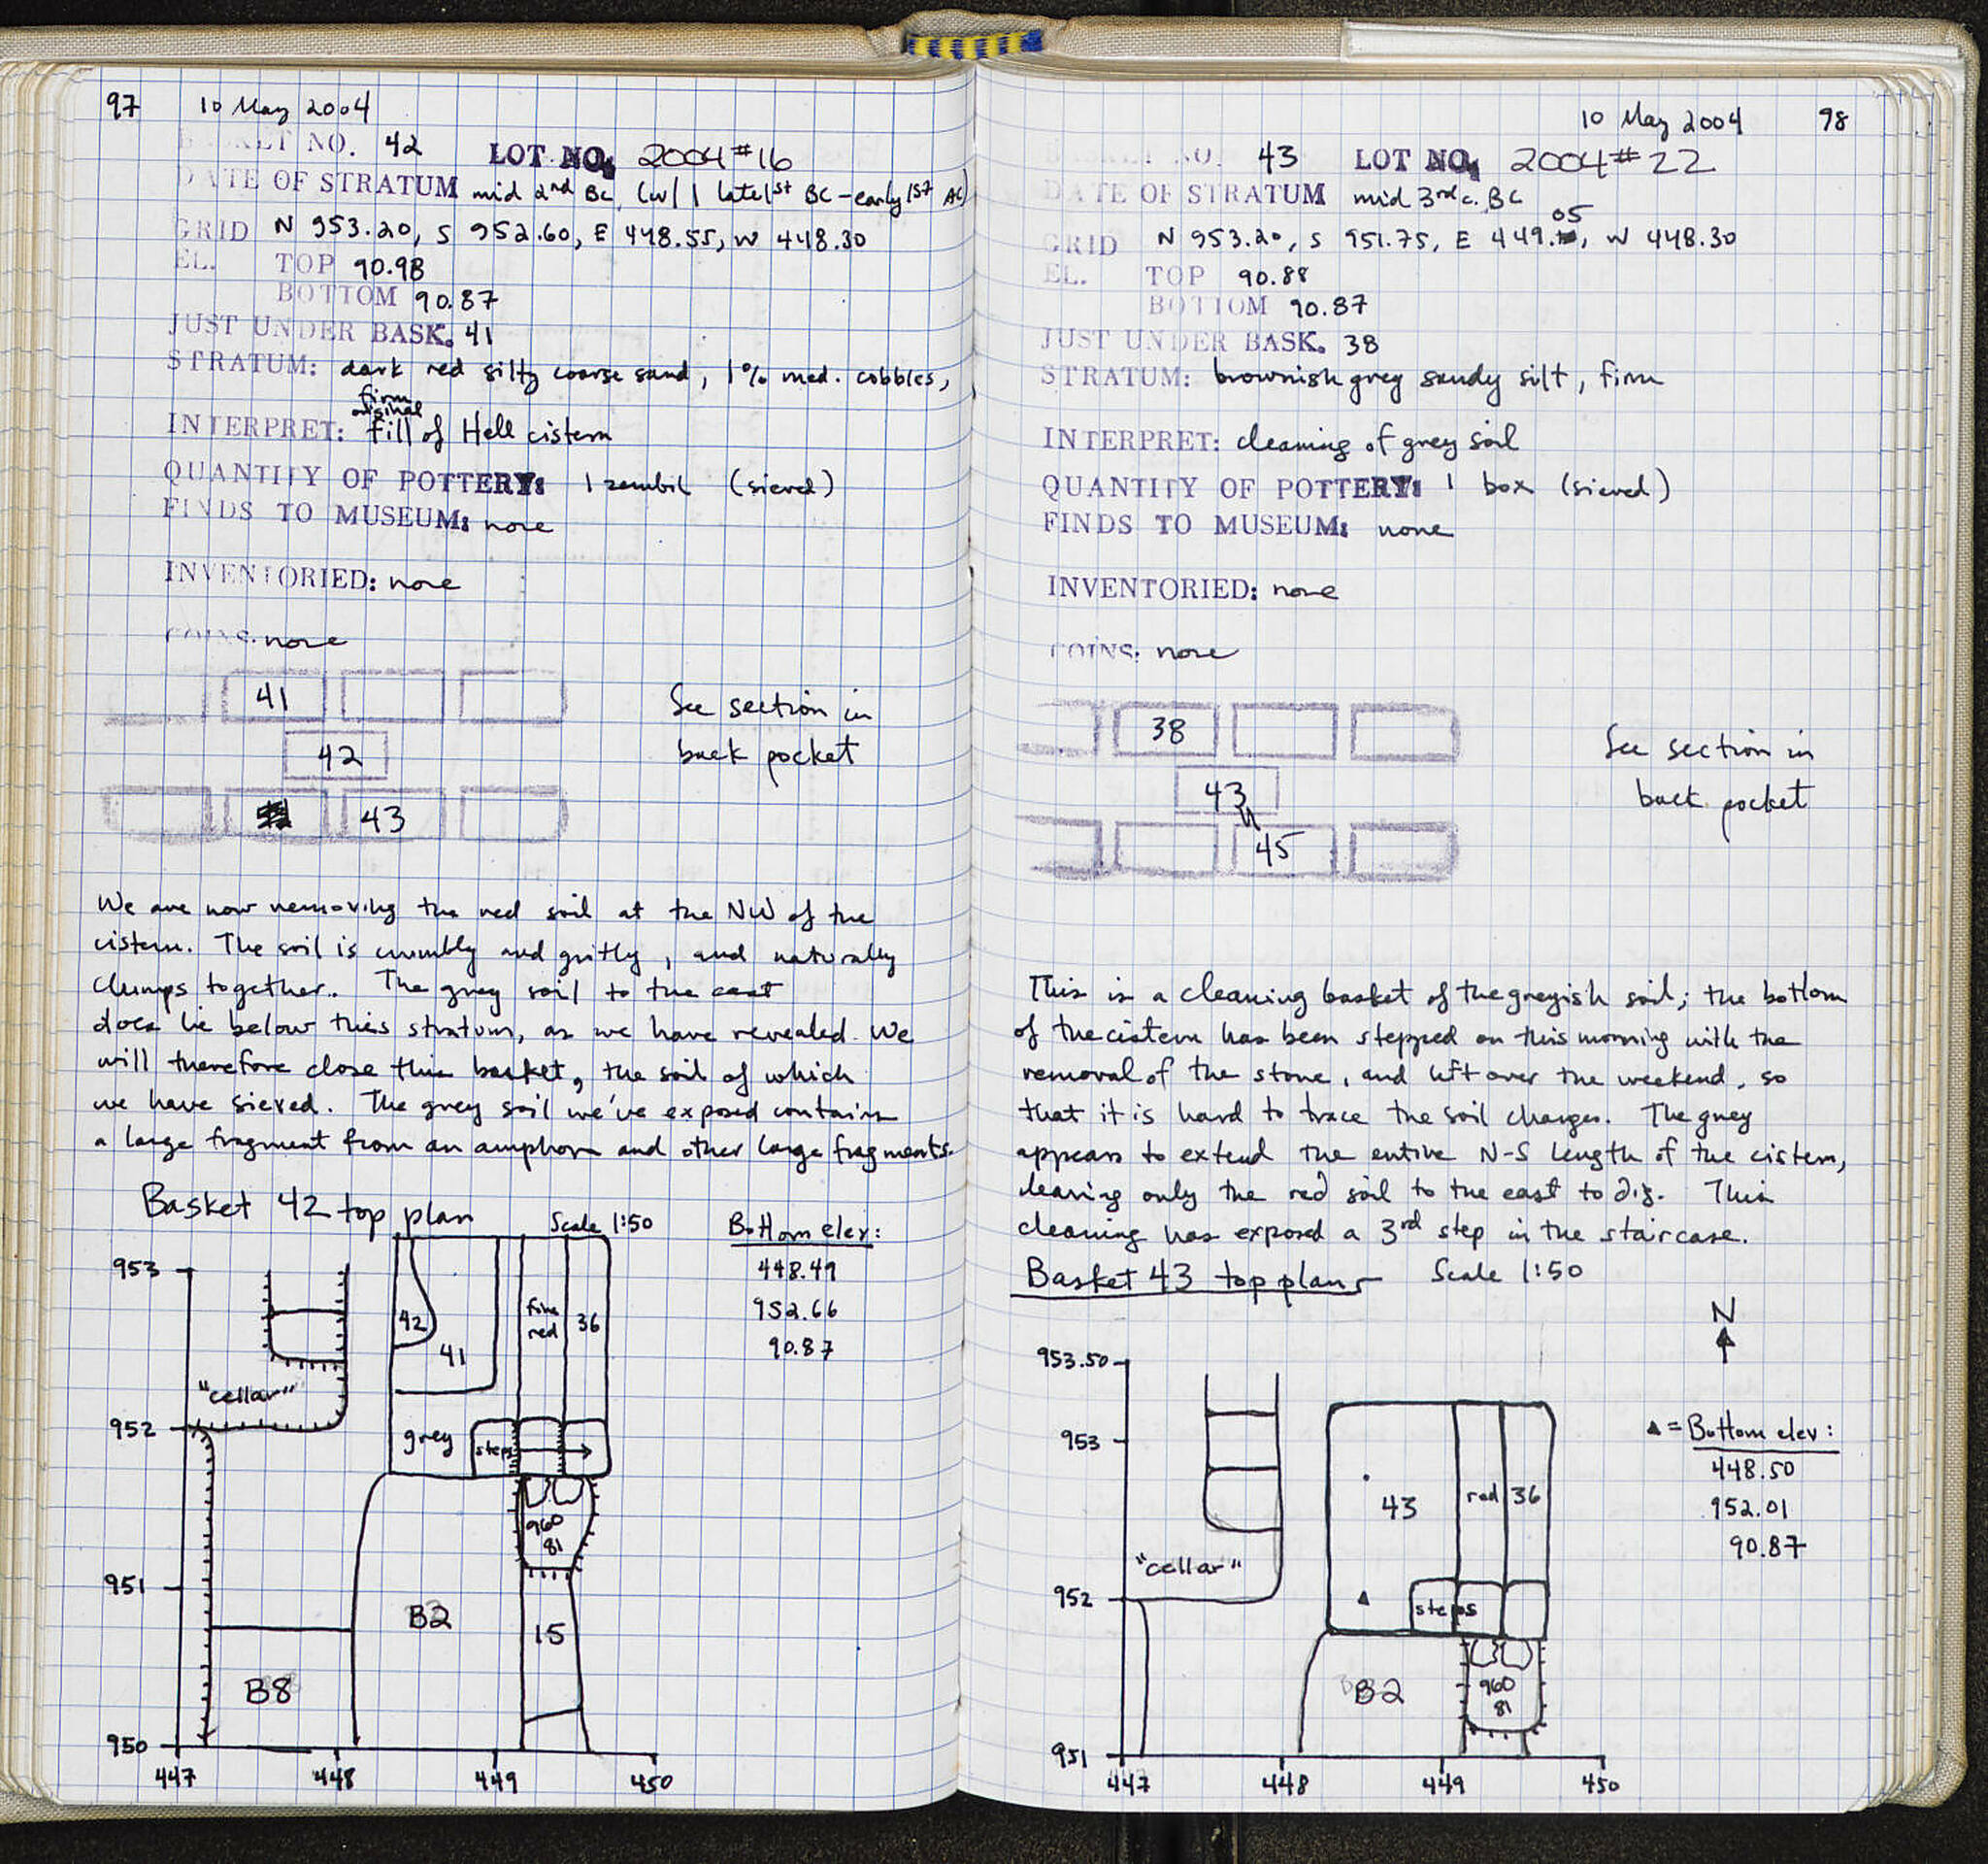 97 10 May 2004
BASKET NO. 42 LOT NO. 2004 #16
DATE OF STRATUM mid 2nd BC (w/ 1 late 1st BC - early 1st AC)
GRID N 953.20, S 952.60, E 448.55, W 448.30
EL. TOP 90.98
BOTTOM 90.87
JUST UNDER BASK. 41
STRATUM: dark red silty coarse sand, 1% med. cobbles,
firm
original
INTERPRET: fill of Hell cistern
QUANTITY OF POTTERY: 1 zembil (sieved)
FINDS TO MUSEUM: none
INVENTORIED: none
COINS: none
41
42
43
See section in
back pocket
We are now removing the red soil at the NW of the
cistern. The soil is crumbly and gritty, and naturally
clumps together. The grey soil to the east
does lie below this stratum, as we have revealed. We
will therefore close this basket, the soil of which
we have sieved. The grey soil we've exposed contains
a large fragment from an amphora and other large fragments.
Basket 42 top plan Scale 1:50
Bottom elev:
448.49
952.66
90.87
953
952
951
950
447 448 449 450
"cellar"
42
41
fine
red
36
grey
steps
960
81
B2
15
B8
10 May 2004 98
BASKET NO. 43 LOT NO. 2004 #22
DATE OF STRATUM mid 3rd c. BC
05
GRID N 953.20, S 951.75, E 449., W 448.30
EL. TOP 90.88
BOTTOM 90.87
JUST UNDER BASK. 38
STRATUM: brownish grey sandy silt, firm
INTERPRET: cleaning of grey soil
QUANTITY OF POTTERY: 1 box (sieved)
FINDS TO MUSEUM: none
INVENTORIED: none
COINS: none
38
43
45
See section in
back pocket
This is a cleaning basket of the greyish soil; the bottom
of the cistern has been stepped on this morning with the
removal of the stone, and left over the weekend, so
that it is hard to trace the soil changes. The grey
appears to extend the entire N-S length of the cistern,
leaving only the red soil to the east to dig. This
cleaning has exposed a 3rd step in the staircase.
Basket 43 top plan Scale 1:50
N
953.50
953
952
951
447 448 449 450
"cellar"
43
red
36
steps
960
81
B2
▲ = Bottom elev:
448.50
952.01
90.87